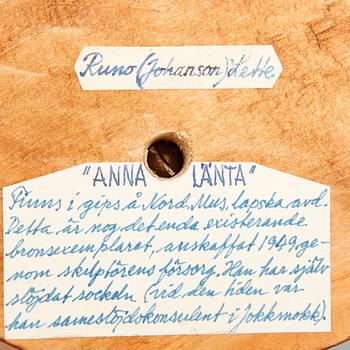 Runo (Johanson) Lette
"ANNA LÄNTA"
Finns i gips å Nord. Mus. lapska avd.
Detta är nog det enda existerande
bronsexemplaret, anskaffat 1949 ge-
nom skulptörens försorg. Han har själv
slöjdat sockeln (vid den tiden var
han sameslöjdskonsulent i Jokkmokk).